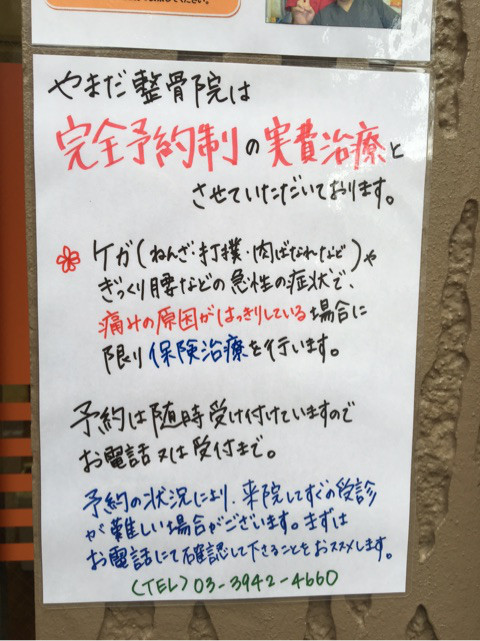 ください。
やまだ整骨院は
完全予約制の実費治療と
させていただいております。
ケガ(ねんざ・打撲・肉ばなれなど)や
ぎっくり腰などの急性の症状で、
痛みの原因がはっきりしている場合に
限り保険治療を行います。
予約は随時受け付けていますので
お電話又は受付まで。
予約の状況により、来院してすぐの受診
が難しい場合がございます。まずは
お電話にて確認して下さることをおススメします。
(TEL) 03-3942-4660